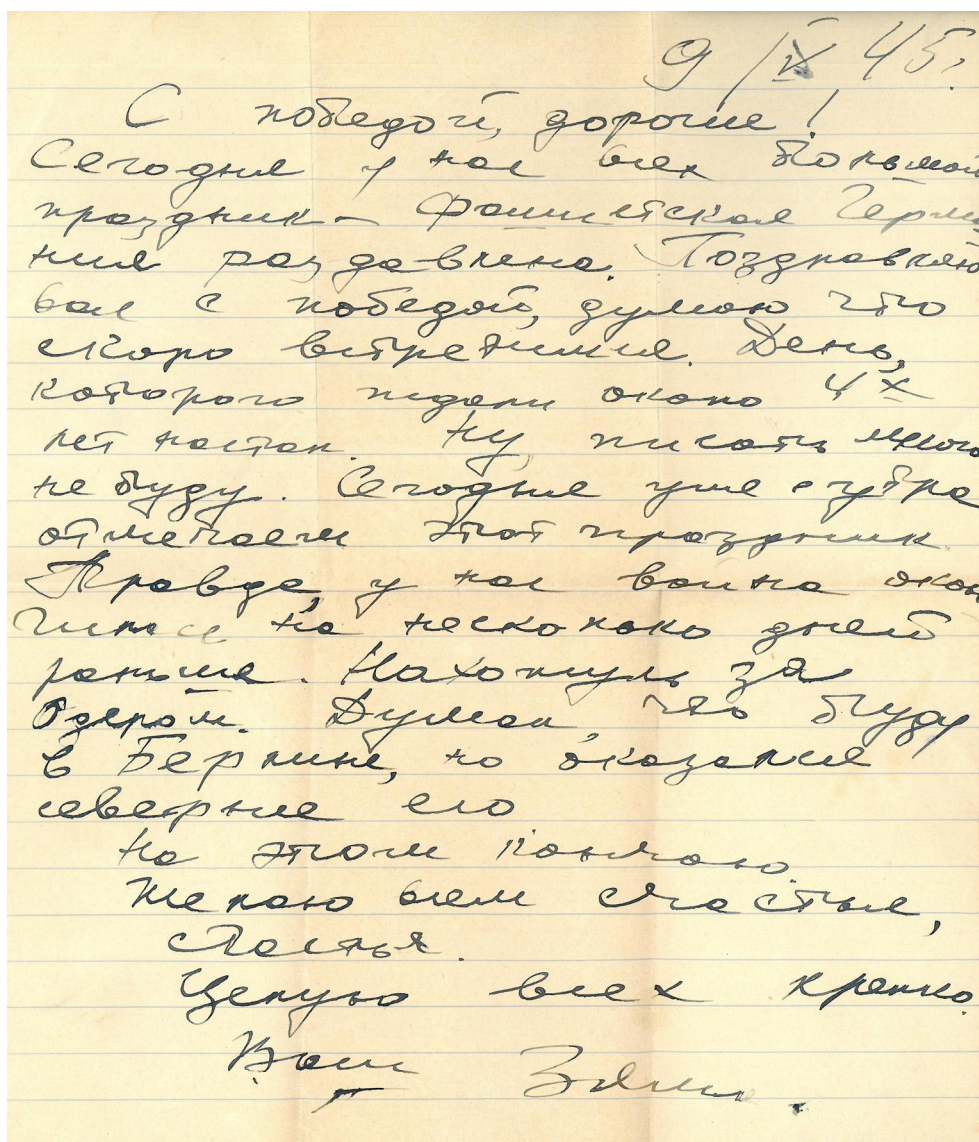 9/V 45г.
С победой, дорогие!
Сегодня у нас всех большой
праздник – фашистская Герма
ния раздавлена. Поздравляю
вас с победой, думаю что
скоро встретимся. День,
которого ждали около 4х
лет настал. Ну, писать много
не буду. Сегодня уже с утра
отмечаем этот праздник
Правда, у нас война окон
чилась на несколько дней
раньше. Нахожусь за
Одером. Думал, что буду
в Берлине, но оказался
севернее его
На этом кончаю.
Желаю всем счастья,
счастья.
Целую всех крепко.
Ваш Зяма.